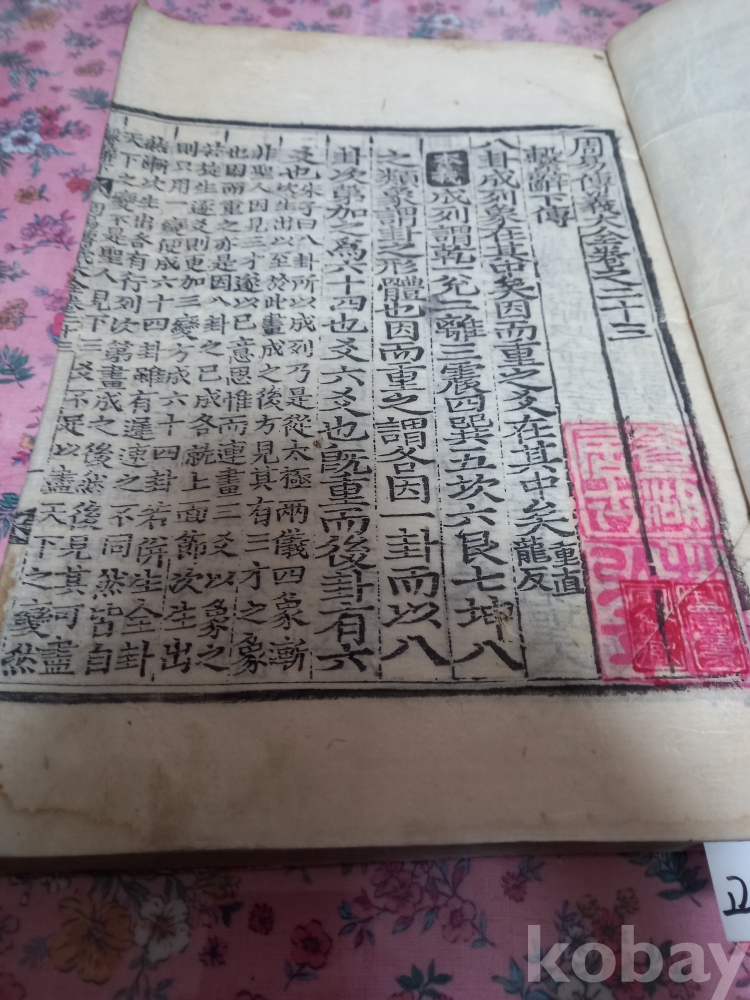 周易傳義大全卷之二十三
繫辭下傳
八卦成列象在其中矣因而重之爻在其中矣重直龍反
本義成列謂乾一兌二離三震四巽五坎六艮七坤八
之類象謂卦之形體也因而重之謂各因一卦而以八
卦次第加之爲六十四也爻六爻也旣重而後卦有六
爻也朱子曰八卦所以成列乃是從太極兩儀四象漸
次生出以至於此畫成之後方見其有三才之象
非聖人因見三才遂以已意思惟而連畫三爻以象之
也因而重之亦是因八卦之已成各就上面節次生出
若旋生逐爻則更加三變方成六十四卦若倂生全卦
則只用一變便成六十四卦雖有遲速之不同然皆自
然漸次生出各有行列次第畫成之後然後見其可盡
天下之變不是聖人見下三爻不足以盡天下之變然
kobay